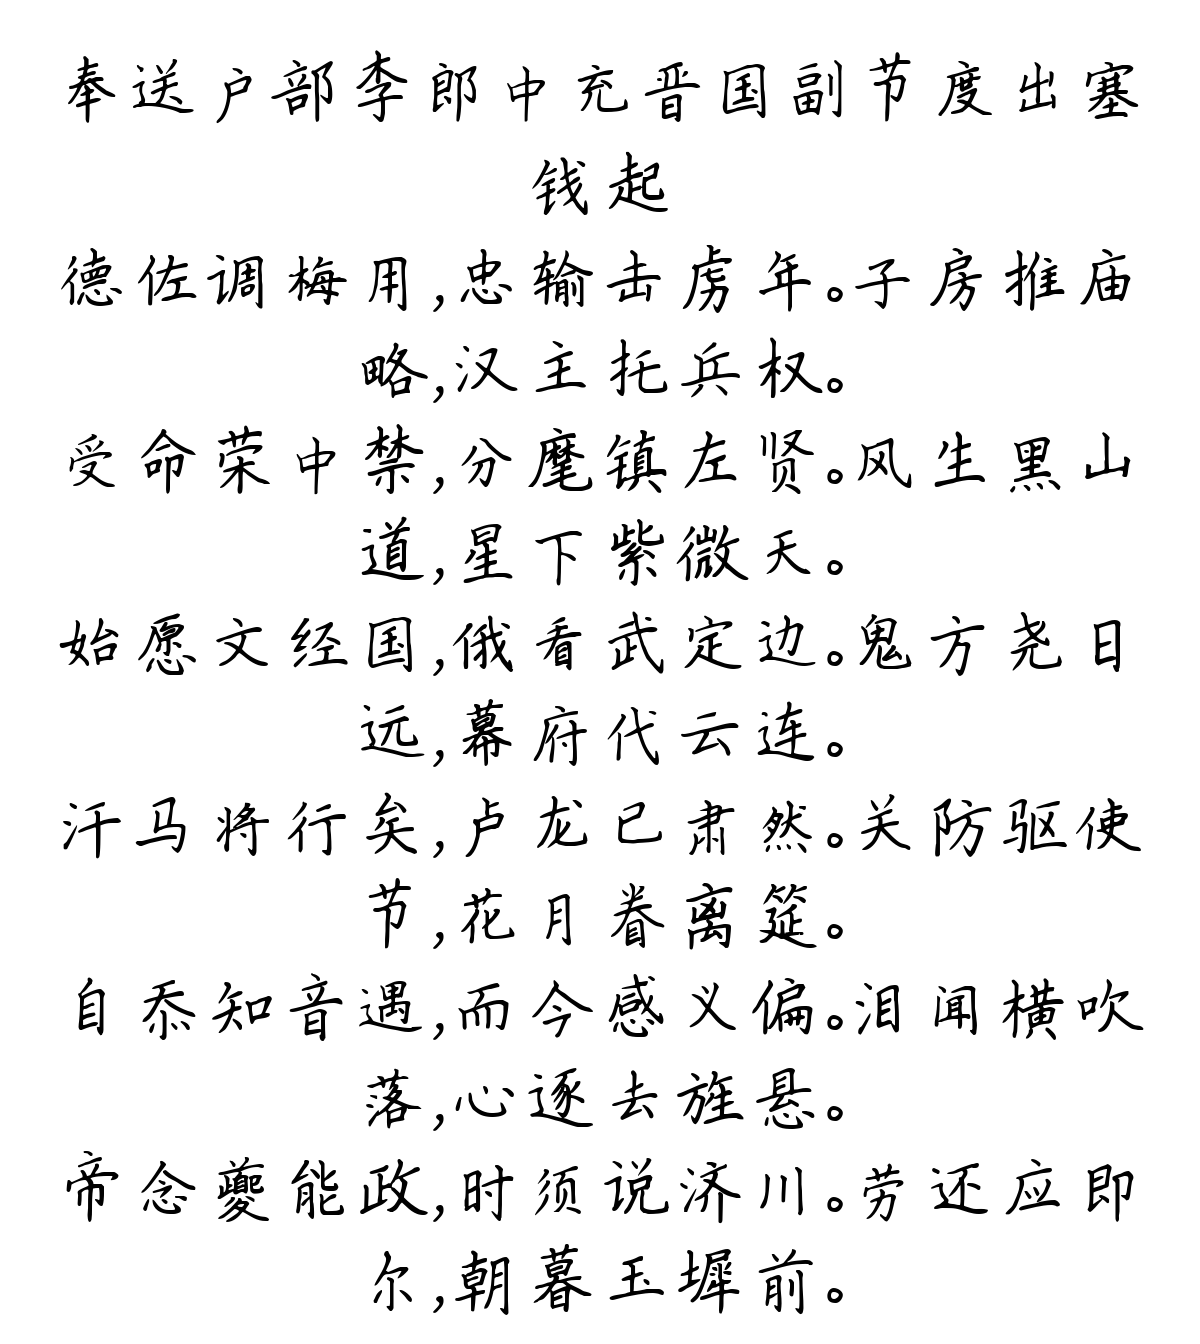 奉送户部李郎中充晋国副节度出塞
钱起
德佐调梅用,忠输击虏年。子房推庙
略,汉主托兵权。
受命荣中禁,分麾镇左贤。风生黑山
道,星下紫微天。
始愿文经国,俄看武定边。鬼方尧日
远,幕府代云连。
汗马将行矣,卢龙已肃然。关防驱使
节,花月眷离筵。
自忝知音遇,而今感义偏。泪闻横吹
落,心逐去旌悬。
帝念夔能政,时须说济川。劳还应即
尔,朝暮玉墀前。